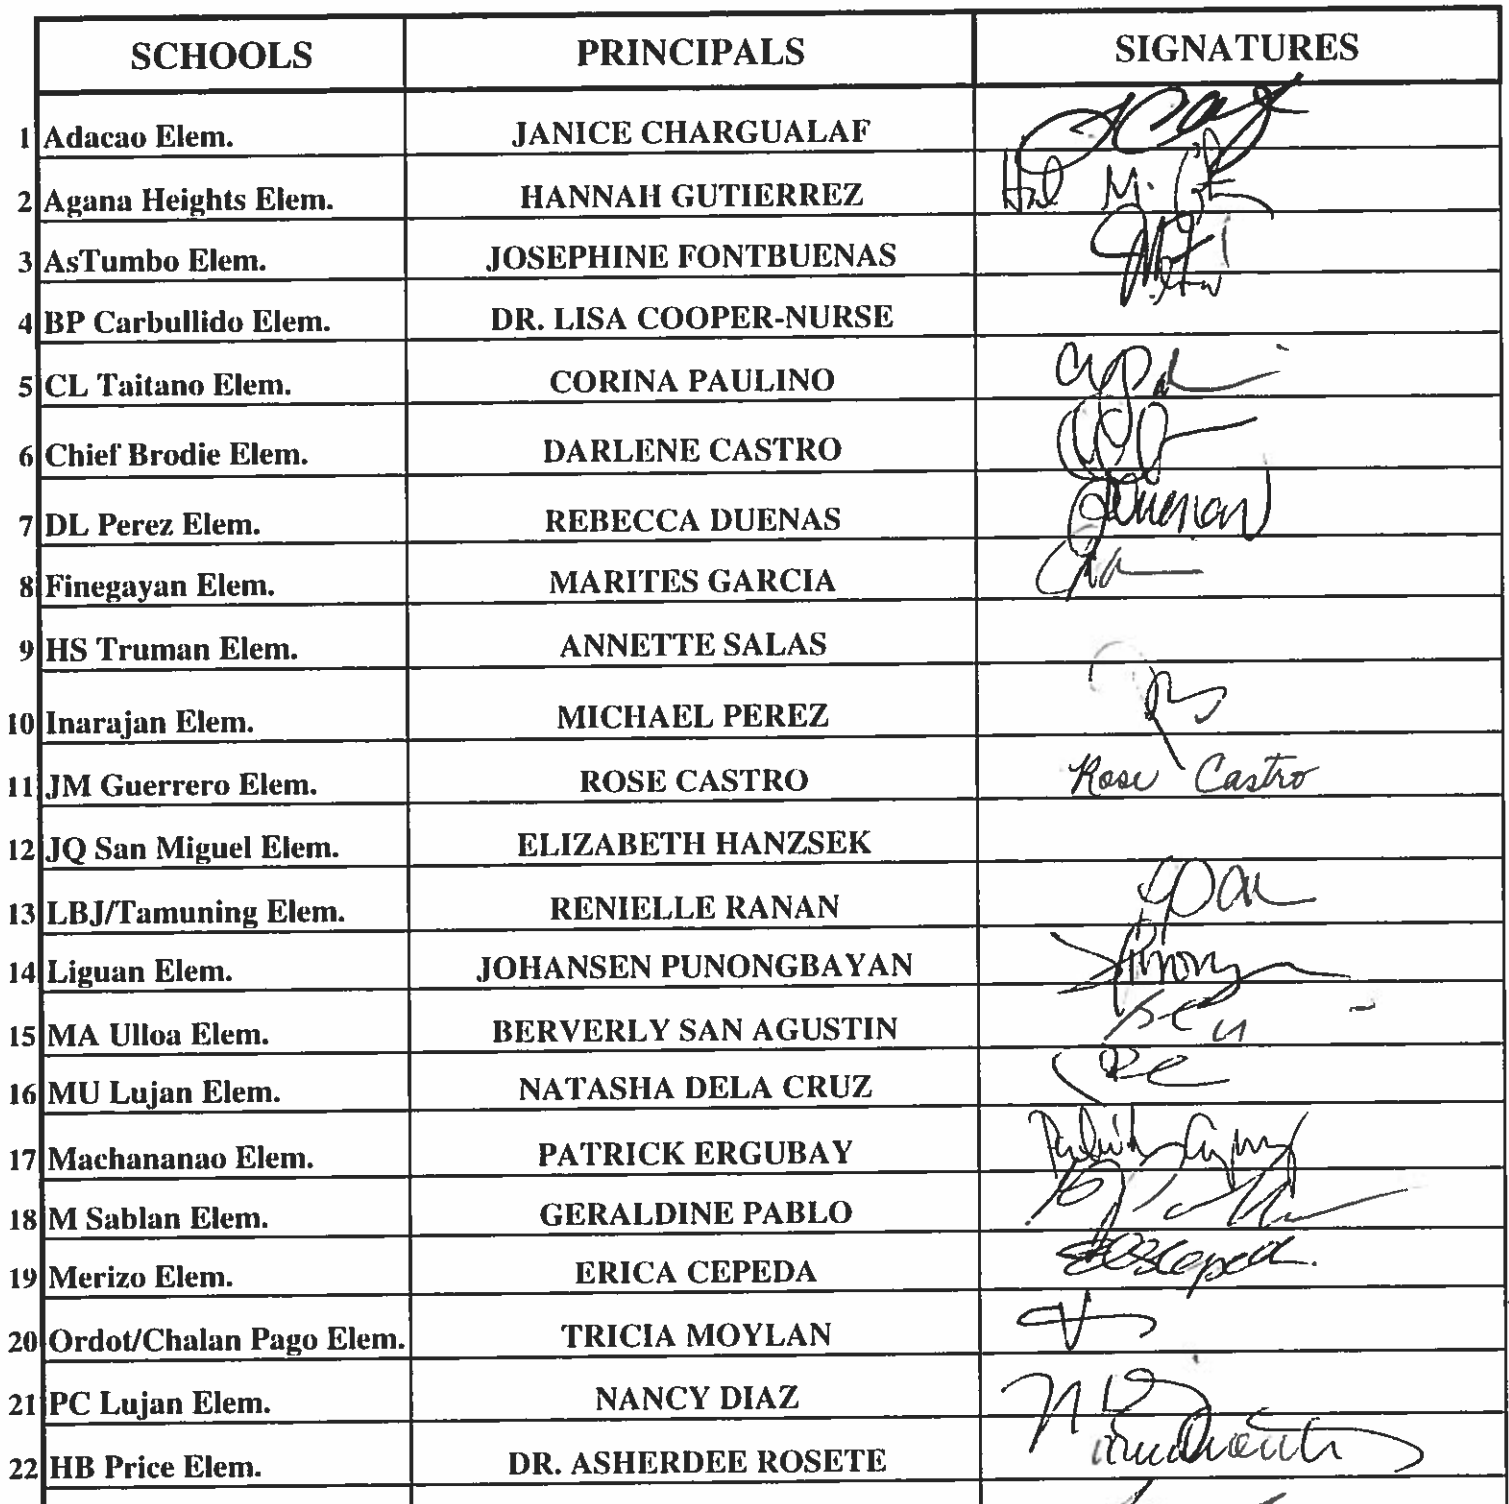 SCHOOLS PRINCIPALS SIGNATURES
1 Adacao Elem. JANICE CHARGUALAF
2 Agana Heights Elem. HANNAH GUTIERREZ
3 AsTumbo Elem. JOSEPHINE FONTBUENAS
4 BP Carbullido Elem. DR. LISA COOPER-NURSE
5 CL Taitano Elem. CORINA PAULINO
6 Chief Brodie Elem. DARLENE CASTRO
7 DL Perez Elem. REBECCA DUENAS
8 Finegayan Elem. MARITES GARCIA
9 HS Truman Elem. ANNETTE SALAS
10 Inarajan Elem. MICHAEL PEREZ
11 JM Guerrero Elem. ROSE CASTRO Rose Castro
12 JQ San Miguel Elem. ELIZABETH HANZSEK
13 LBJ/Tamuning Elem. RENIELLE RANAN
14 Liguan Elem. JOHANSEN PUNONGBAYAN
15 MA Ulloa Elem. BERVERLY SAN AGUSTIN
16 MU Lujan Elem. NATASHA DELA CRUZ
17 Machananao Elem. PATRICK ERGUBAY
18 M Sablan Elem. GERALDINE PABLO
19 Merizo Elem. ERICA CEPEDA
20 Ordot/Chalan Pago Elem. TRICIA MOYLAN
21 PC Lujan Elem. NANCY DIAZ
22 HB Price Elem. DR. ASHERDEE ROSETE